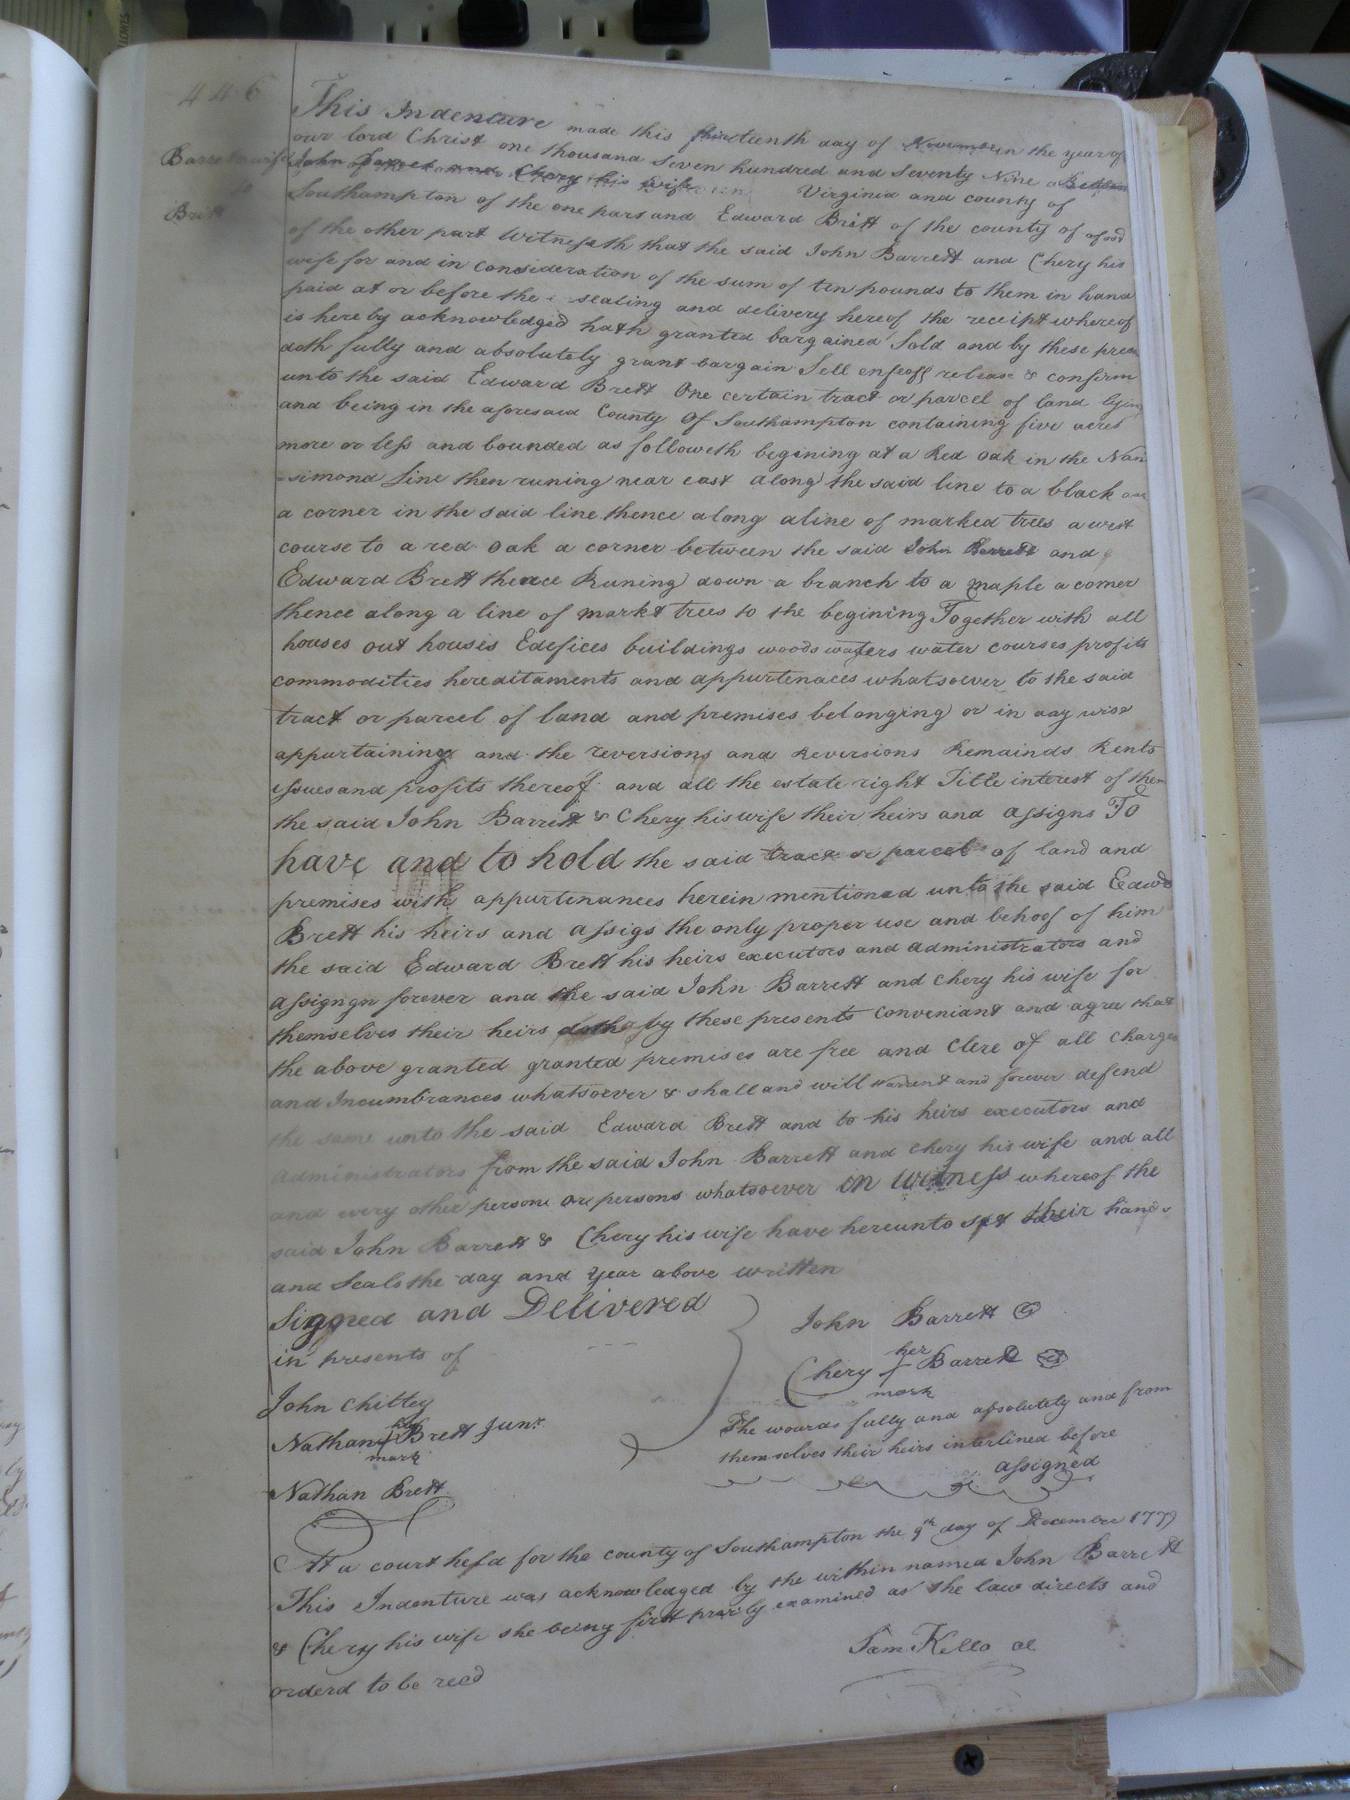 446
Barret & wife
to
Britt
This Indenture made this thirteenth day of November in the year of
our lord Christ one thousand Seven hundred and Seventy Nine Between
John Barret and Chery his wife Virginia and county of
Southampton of the one part and Edward Britt of the county of afosd
of the other part Witnesseth that the said John Barrett and Chery his
wife for and in consideration of the sum of ten pounds to them in hand
paid at or before the sealing and delivery hereof the receipt whereof
is hereby acknowledged hath granted bargained Sold and by these presen
doth fully and absolutely grant bargain Sell enfeoff release & confirm
unto the said Edward Brett One certain tract or parcel of land lying
and being in the aforesaid County Of Southampton containing five acres
more or less and bounded as followeth begining at a Red Oak in the Nan
-simond line then runing near east along the said line to a black oak
a corner in the said line thence along a line of marked trees a west
course to a red Oak a corner between the said John Barrett and
Edward Brett thence Runing down a branch to a maple a corner
thence along a line of markt trees to the begining Together with all
houses out houses Edefices buildings woods waters water courses profits
commodities hereditaments and appurtenaces whatsoever to the said
tract or parcel of land and premises belonging or in any wise
appurtaining and the reversions and Reversions Remainds Rents
issues and profits thereof and all the estate right Title interest of them
the said John Barrett & Chery his wife their heirs and assigns To
have and to hold the said tract or parcel of land and
premises with appurtenances herein mentioned unto the said Edwd
Brett his heirs and assigs the only proper use and behoof of him
the said Edward Brett his heirs executors and administrators and
assigngn forever and the said John Barrett and Chery his wife for
themselves their heirs doth by these presents conveniant and agree that
the above granted granted premises are free and Clere of all Charges
and Incumbrances whatsoever & shall and will warrent and forever defend
the same unto the said Edward Brett and to his heirs executors and
administrators from the said John Barrett and Chery his wife and all
and every other persone ore persons whatsoever in witness whereof the
said John Barrett & Chery his wife have hereunto set their hands
and Seals the day and year above written
Signed and Delivered
in presents of
John Chittey
his
Nathan Brett Junr
mark
Nathan Brett
John Barrett
her
Chery Barrett
mark
The wourds fully and absolutely and from
themselves their heirs interlined before
assigned
At a court held for the county of Southampton the 9th day of December 1779
This Indenture was acknowledged by the within named John Barrett
& Chery his wife she being first privily examined as the law directs and
orderd to be recd
Sam Kello cl